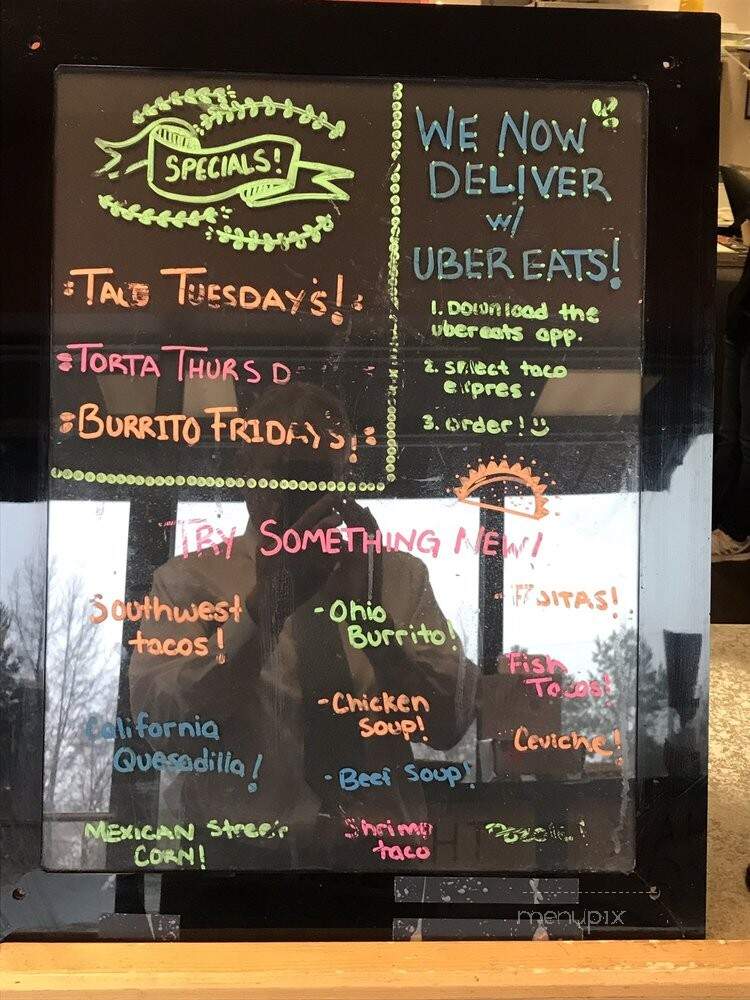 SPECIALS!
TACO TUESDAY'S!
TORTA THURSD
BURRITO FRIDAYS!
WE NOW
DELIVER
w/
UBER EATS!
1. Download the
ubereats app.
2. select taco
expres.
3. order!
TRY SOMETHING NEW!
Southwest
tacos!
California
Quesadilla!
MEXICAN Street
CORN!
-Ohio
Burrito!
-Chicken
Soup!
-Beef Soup!
Shrimp
taco
-FAJITAS!
Fish
Tacos!
Ceviche!
menupix